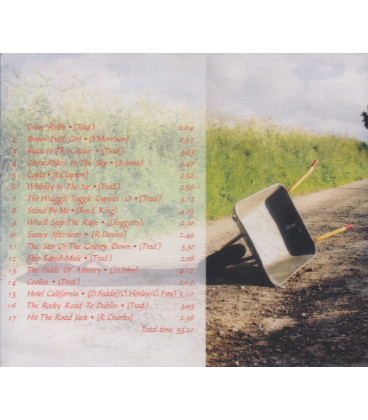 Reilly • (Trad.) 2.04
Brown Eyed Girl • (V.Morrison) 2.52
Is The Colour • (Trad.) 2.43
4 Ghost Riders In The Sky • (S.Jones) 3.47
5 Layla • (E.Clapton) 2.52
6 Whiskey In The Jar • (Trad.) 2.58
7 The (Trad.)
8 Stand By Me • (Ben E. King) 4.03
9 Who'll Stop The Rain • (J.Foggaty) 2.30
10 Sunny Afternoon • (R.Davies) 2.49
11 The Star Of The County Down • (Trad.) 3.30
12 Flop Eared Mule • (Trad.) 2.06
13 The Fields Of Athenry • 4.12
14 Cooley • (Trad.)
15 Hotel California • (D.Felder/O.Henley/G.Frey) 5.10
16 The Rocky Road To Dublin • (Trad.) 3.03
17 Hit The Road Jack • (R.Charles) 2.36
Total time 53.20